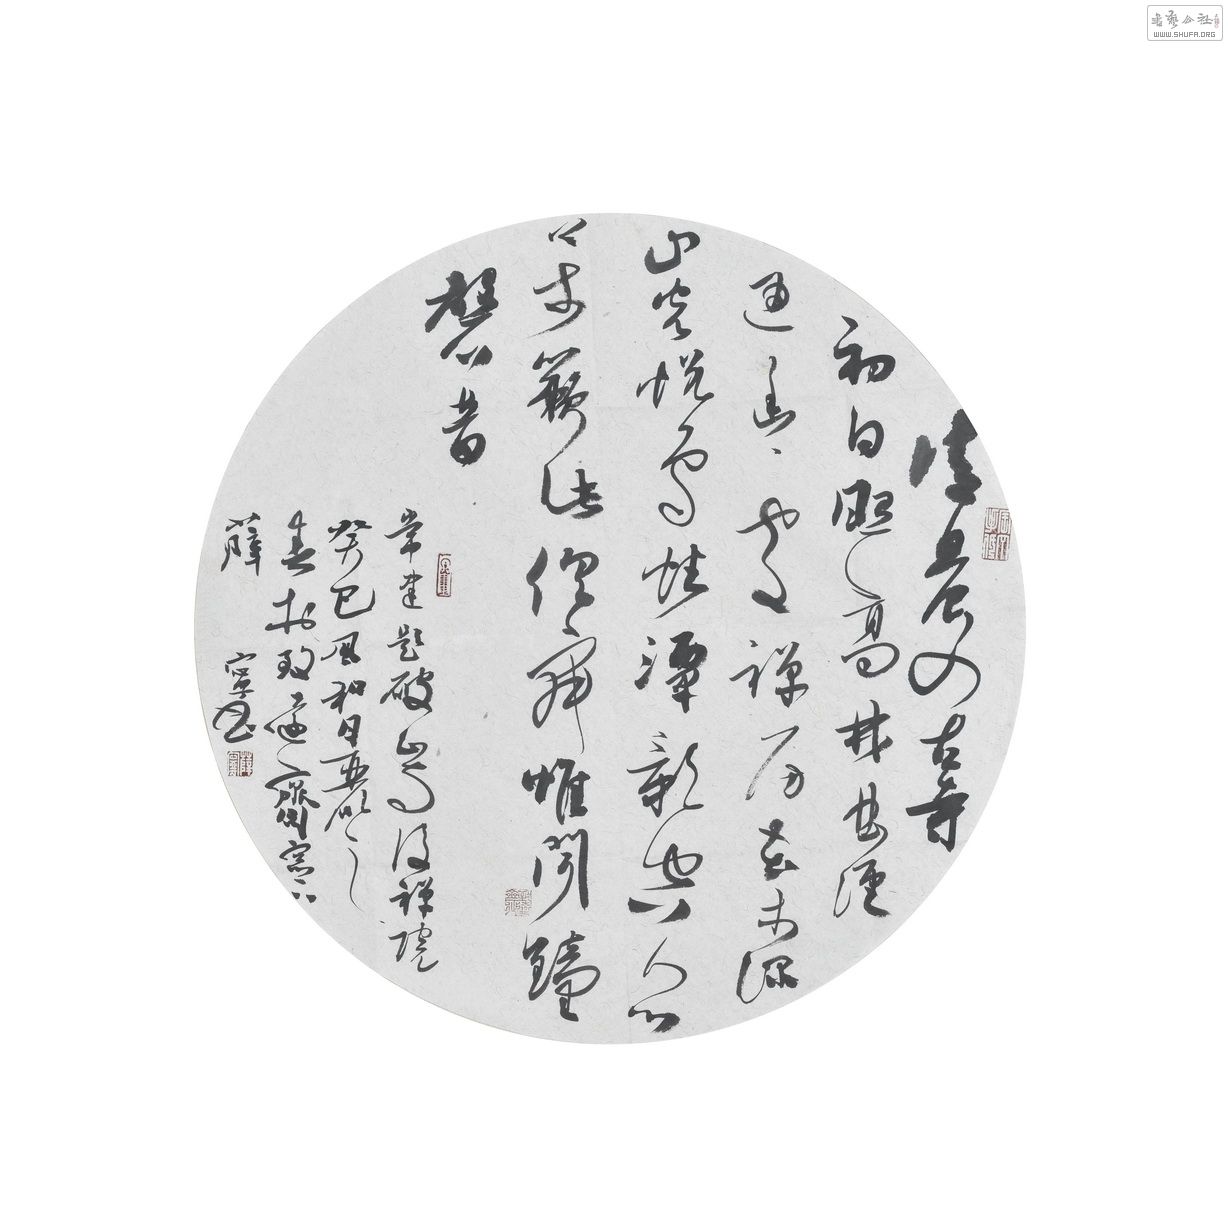 清晨入古寺
初日照高林曲徑
通幽處禪房花木深
山光悅鳥性潭影空人心
萬籟此俱寂惟聞鐘
磬音
常建題破山寺後禪院
癸巳風和日麗之
春於致遠齋窓下
薛寧書
WWW.SHUFA.ORG